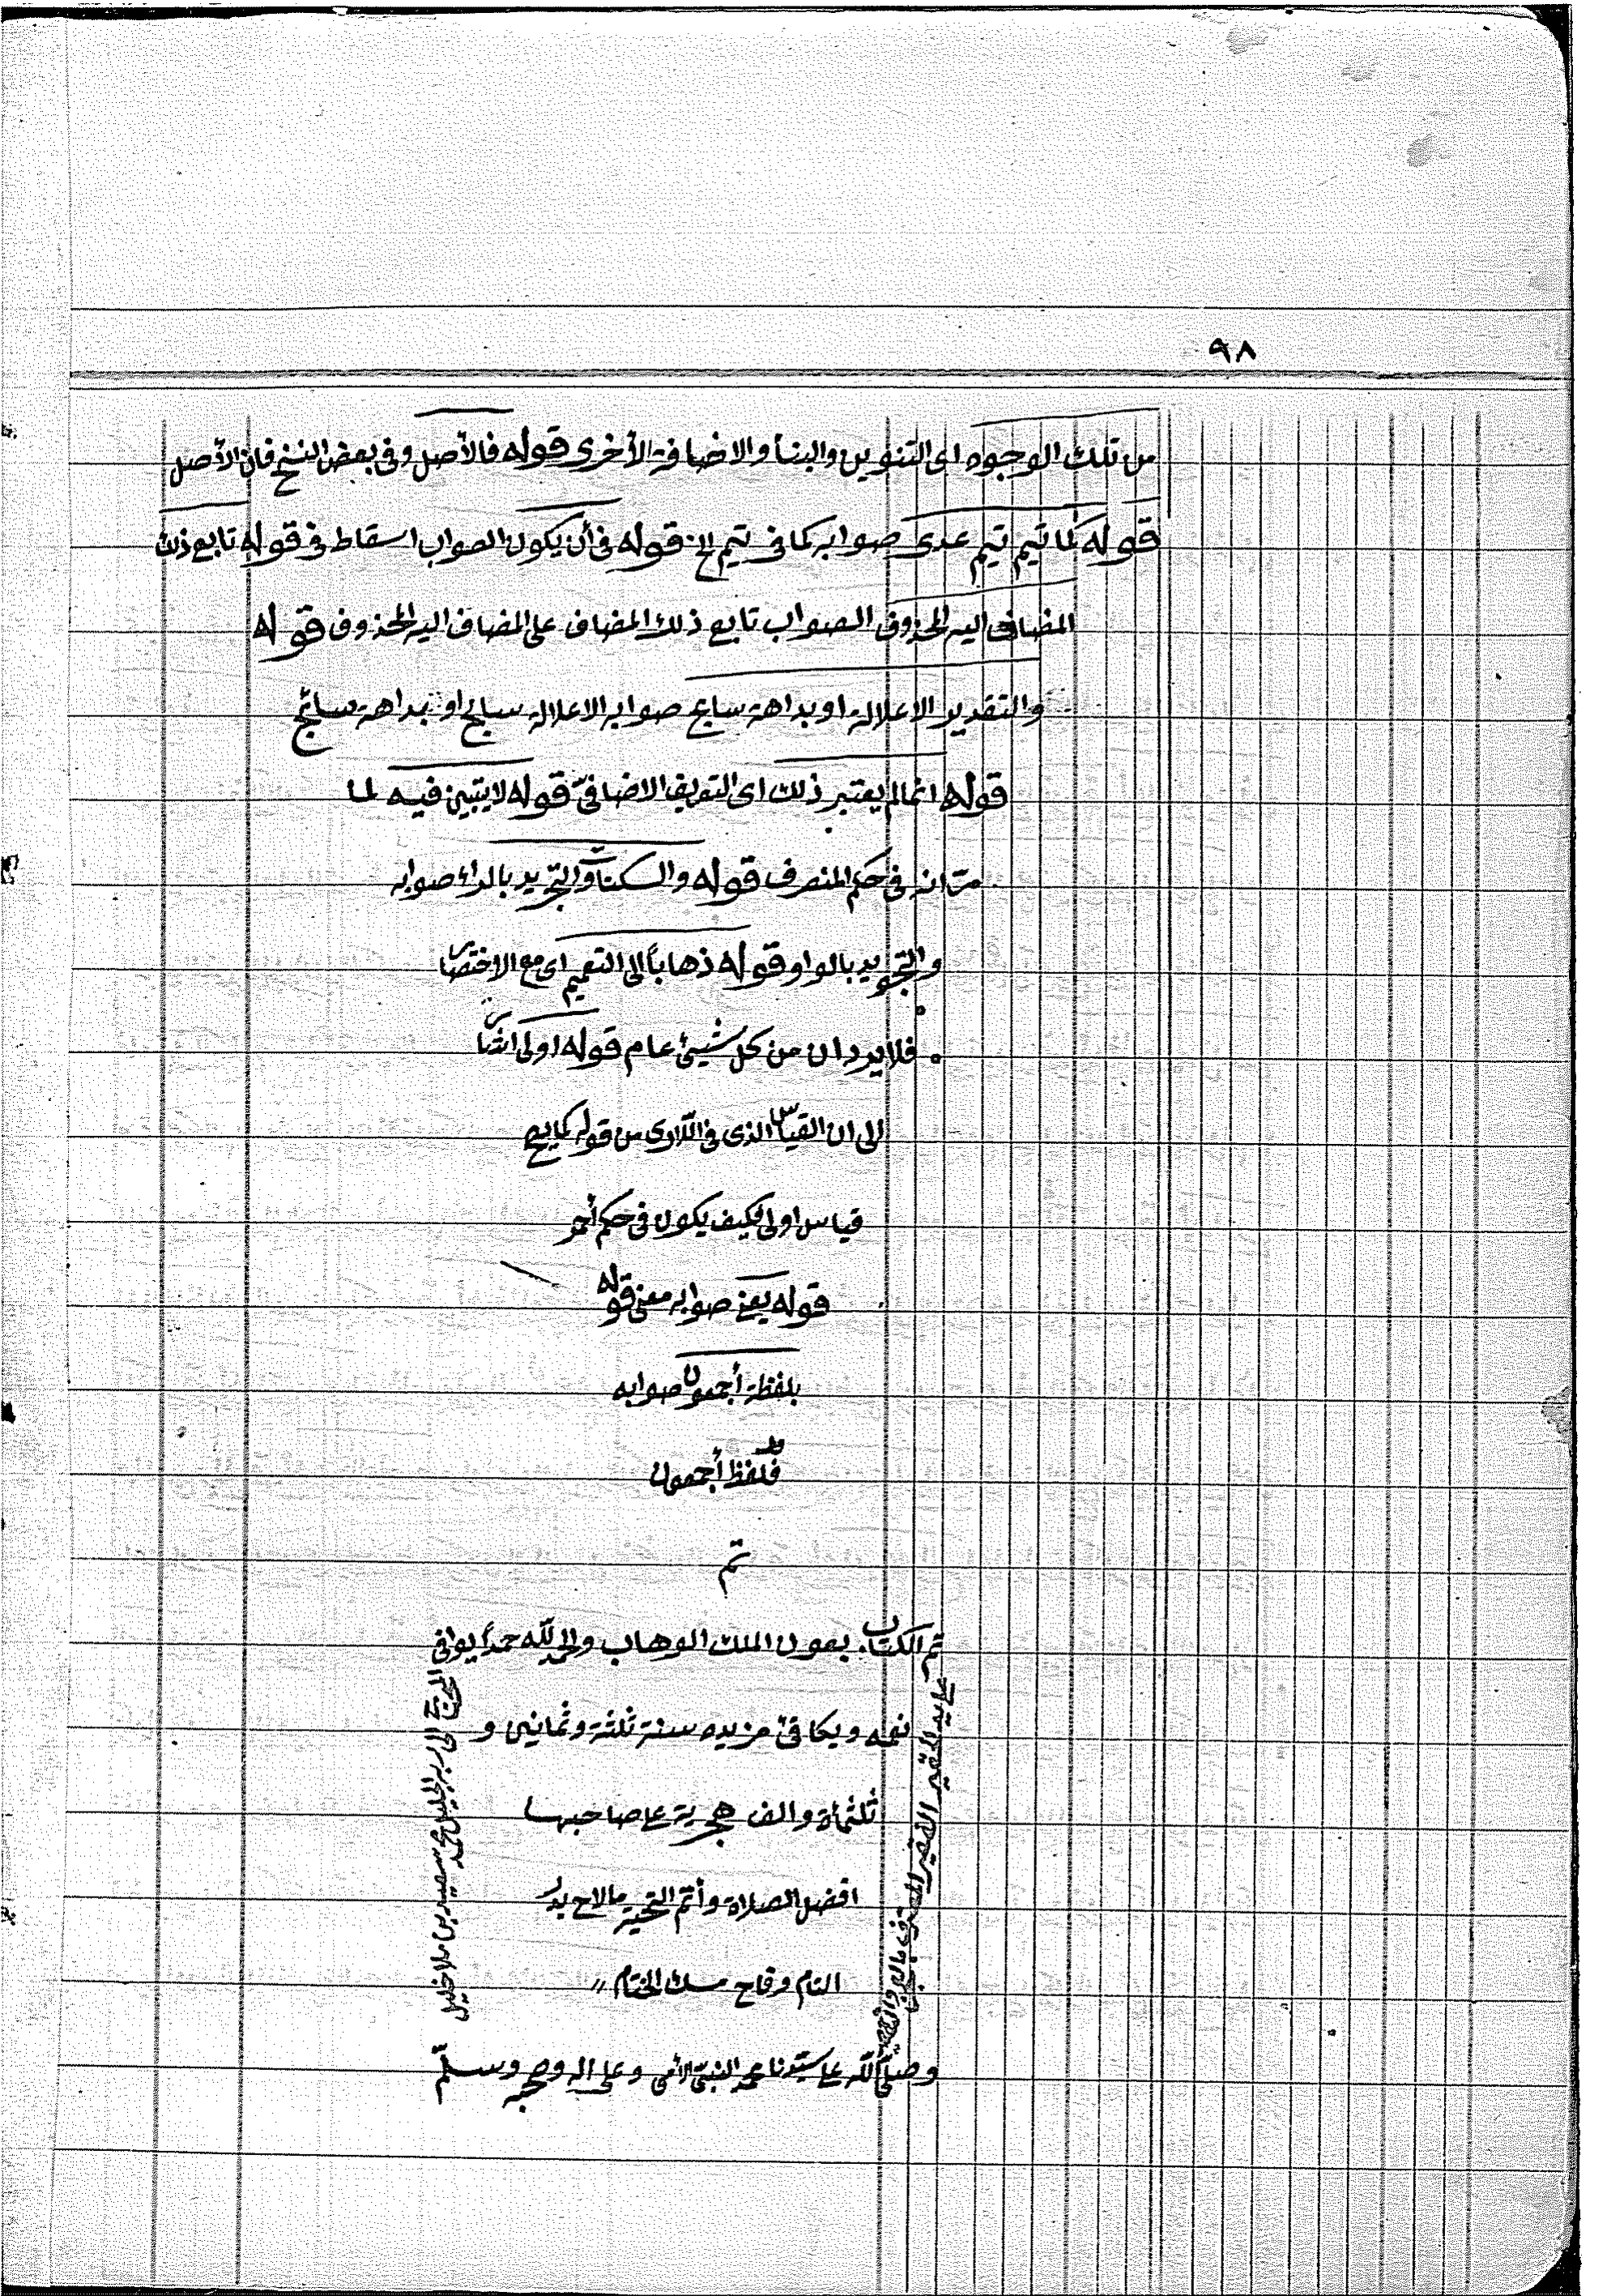 ٩٨
من تلك الوجوه اى التنوين والبنأ والاضافة الأخرى قوله فالأصل وفى بعض النسخ فان الأصل
قوله كما تيم تيم عدى صوابه كما فى تيم الخ قوله فى أن يكون الصواب اسقاط فى قوله تابع ذلك
المضاف اليه المحذوف الصواب تابع ذلك المضاف على المضاف اليه المحذوف قوله
والتقدير الا علالة او بداهة سابع صوابه الا علالة سابح او بداهة سابح
قوله انما لم يعتبر ذلك اى التعريف الاضافىّ قوله لا يتبين فيه لما
مرّ انه فى حكم المنصرف قوله والسكتات والتجريد بالراء صوابه
والتجويد بالواو قوله ذهاباً الى التعميم اى مع الاختصار
فلا يرد ان من كل شيئ عام قوله اولى اشار
الى ان القياس الذى فى اللارى من قوله كما يصح
قياس اولى فكيف يكون فى حكم أحمر
قوله يعنى صوابه معنى قوله
بلفظة أجمعون صوابه
فلفظ أجمعون
تم
تم الكتاب بعون الملك الوهاب والحمد لله حمداً يوافى
نعمه ويكافئ مزيده سنة ثلثة وثمانين و
ثلثمأة والف هجرية على صاحبها
افضل الصلاة وأتمّ التحية ما لاح بدر
التام وفاح مسك الختام
وصلى الله على سيدنا محمد النبىّ الأمى وعلى اله وصحبه وسلم
على يد الفقير الحقير المعترف بالعجز والتقصير
المحتاج الى ربه الجليل محمد سعيد بن ملا خليل